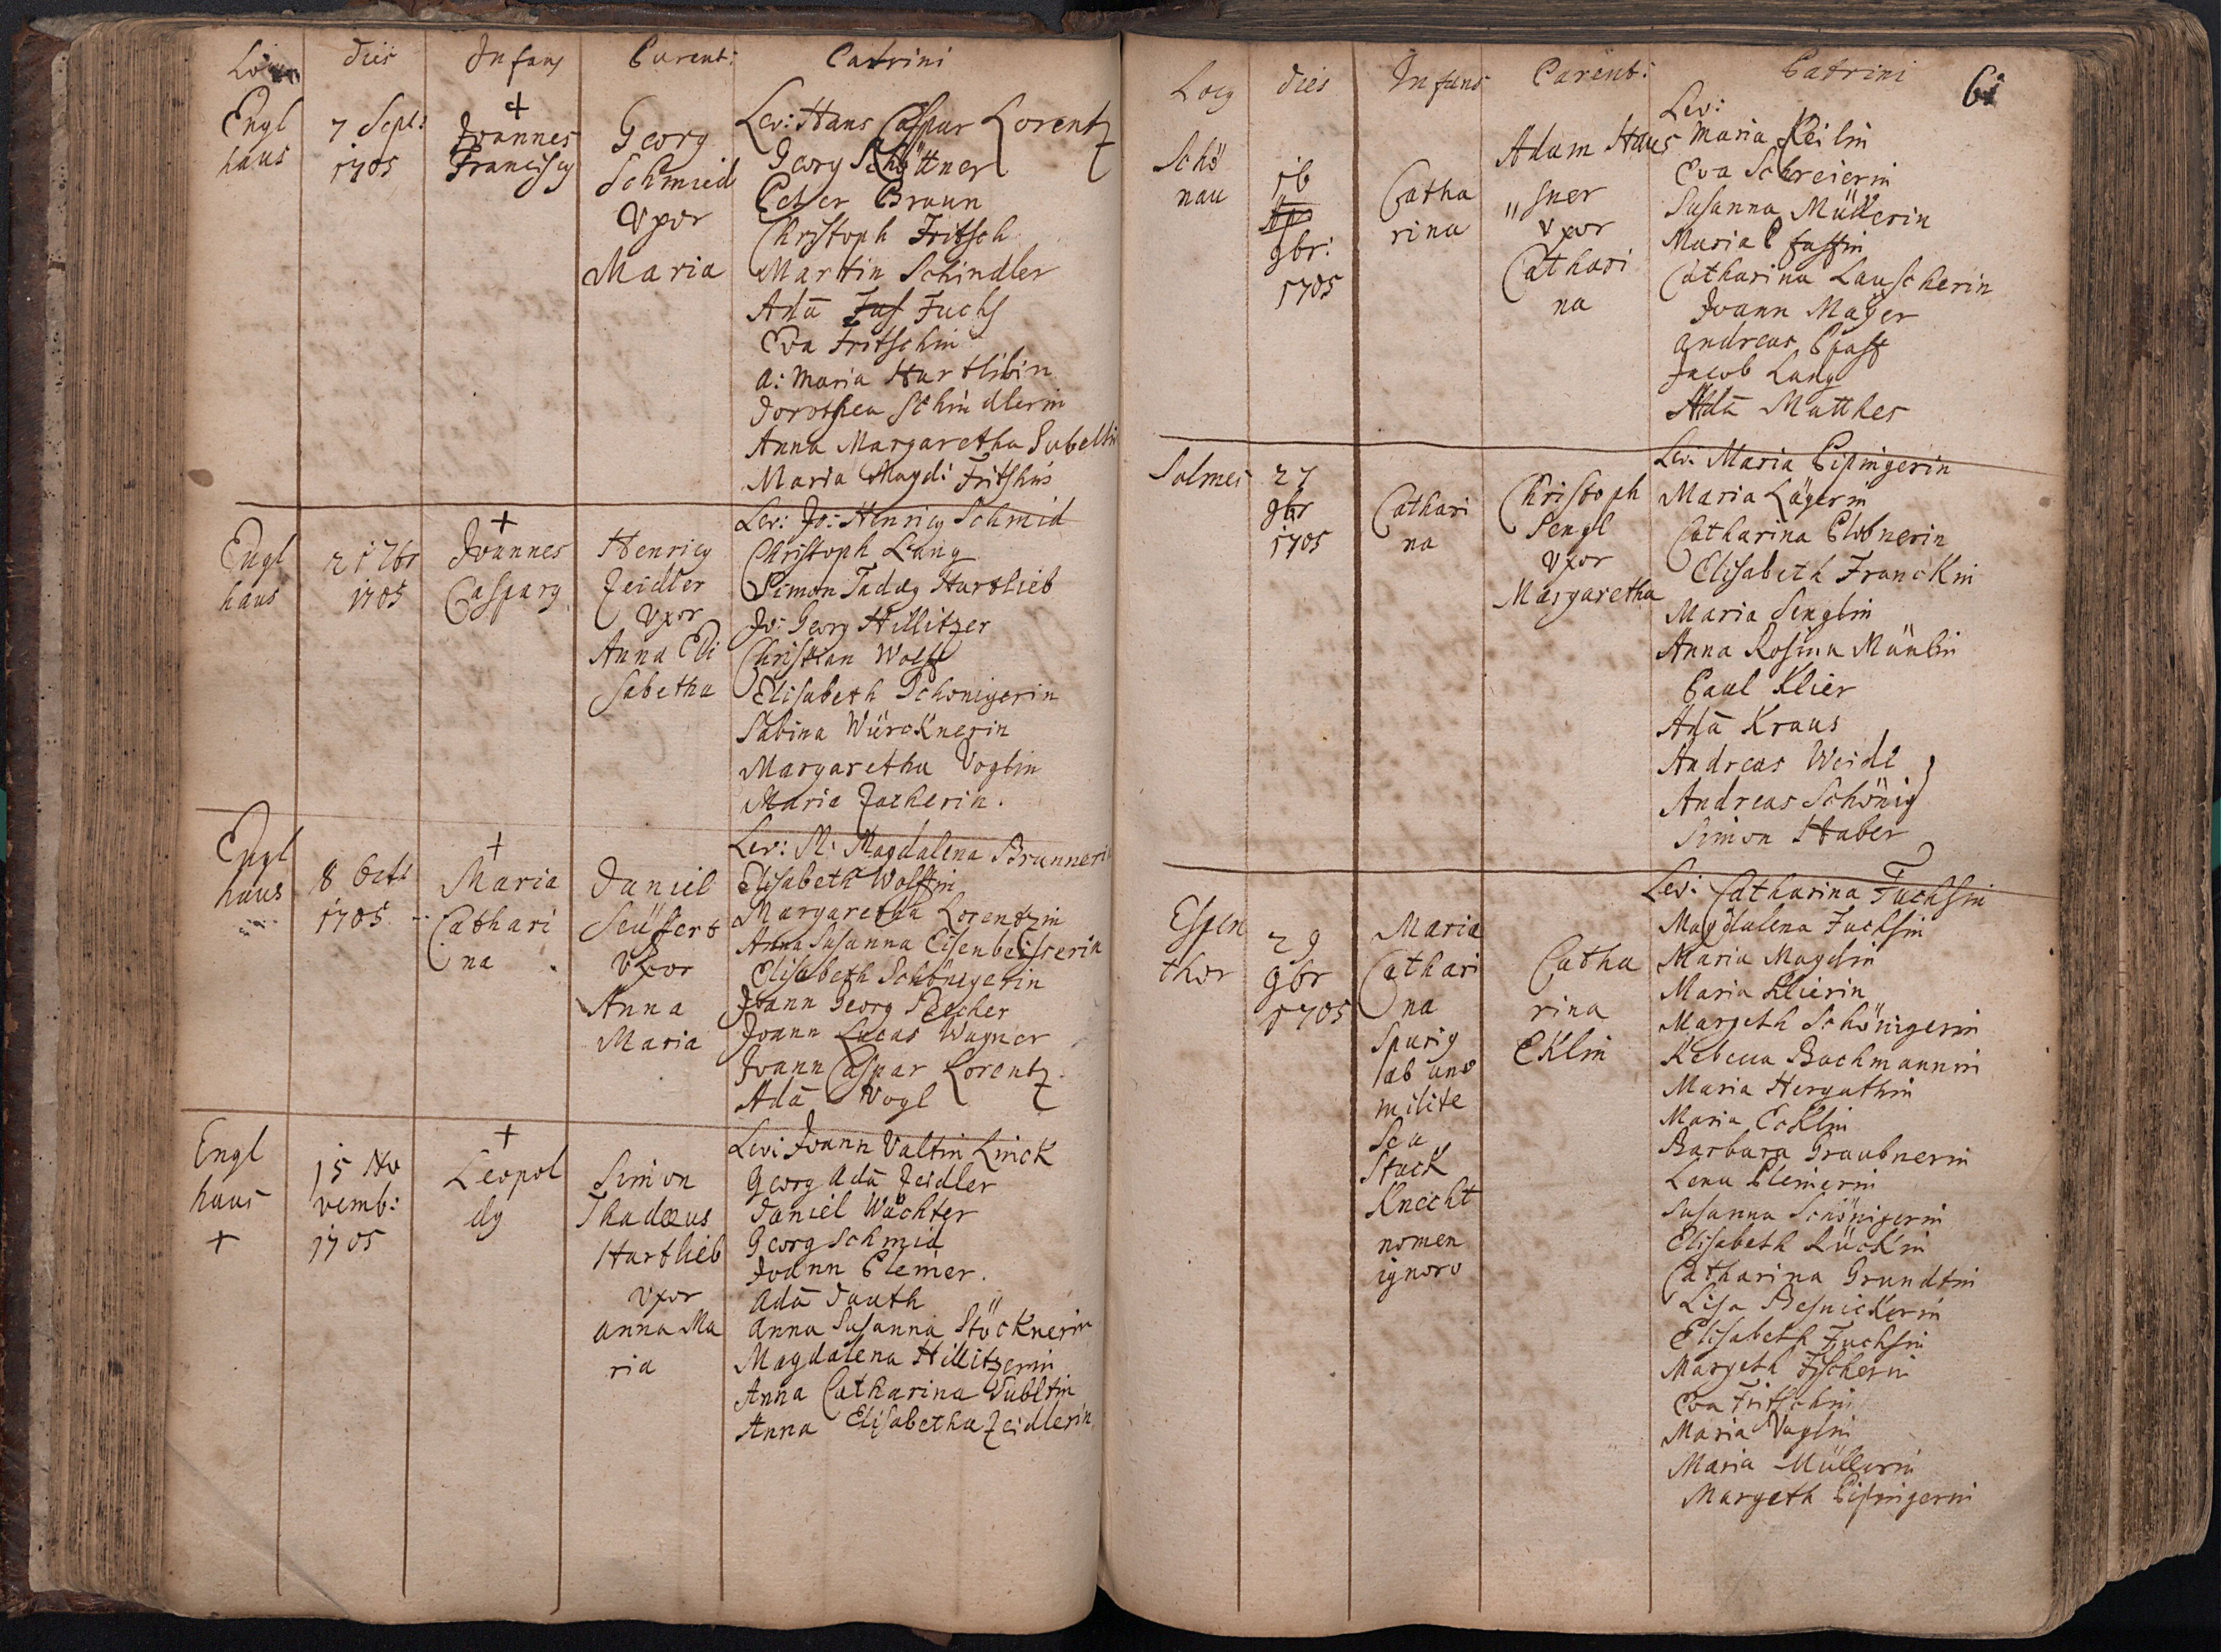 dies Infans Parent: Patrini
Engl
haus
7 Sept:
1705
+
Joannes
Franciscq
Georg
Schmied
Vxor
Maria
Lev: Hans Caspar Lorentz
Georg Schöttner
Peter Braun
Christoph Fritsch
Martin Schindler
Adā Fuchs
Eva Fritschin
A: Maria Hartlibin
Dorothea Schindlerin
Anna Margaretha
Maria Magd: Fritshin
Engl
haus
21 7br
1705
+
Joannes
Casparq
Henricq
Zeidler
Vxor
Anna Eli
sabetha
Lev: Jo: Henricq Schmid
Christoph Lang
Simon Tadæq Hartlieb
Jo: Georg Hillitzer
Christian Wolff
Elisabeth Schonigerin
Sabina Würcknerin
Margaretha Voglin
Maria Zacherin.
Engl
haus
8 Octb
1705
+
Maria
Cathari
na
Daniel
Seüffert
Vxor
Anna
Maria
Lev: M. Magdalena Brunnerin
Elisabeth Wolffin
Margaretha Lorentzin
Anna Susanna Eisenbeisserin
Elisabeth Schönigerin
Joann Georg Becher
Joann Lucas Wagner
Joann Caspar Lorentz
Adā Vogl
Engl
haus
+
15 No
vemb:
1705
+
Leopol
dq
Simon
Thadæus
Hartlieb
Vxor
Anna Ma
ria
Lev: Joann Valtin Linck
Georg Adā Zeidler
Daniel Wächter
Georg Schmid
Joann Pleiner.
Adā Dauth
Anna Susanna Stöcknerin
Magdalena Hillitzerin
Anna Catharina
Anna Elisabetha Zeidlerin
Locq dies Infans Parent: Patrini
61
Schö
nau
16
9br:
1705
Catha
rina
Adam Haus
„sner
Vxor
Cathari
na
Lev:
Maria Keilin
Eva Schreierin
Susanna Müllerin
Maria Pfaffin
Catharina Lauscherin
Joann Mayer
Andreas Pfaff
Jacob Lang
Adā Matthes
Salmes
27
9br
1705
Cathari
na
Christoph
Sengl
Vxor
Margaretha
Lev: Maria Pipingerin
Maria Lägerin
Catharina Plobnerin
Elisabeth Franckin
Maria Senglin
Anna Rosina Mäülin
Paul Klier
Adā Kraus
Andreas Weidl
Andreas Schönig
Simon Haber
Espen
thor
29
9br
1705
Maria
Cathari
na
Spuriq
ab uno
milite
seu
Stuck
Knecht
nomen
ignoro
Catha
rina
Eklin
Lev: Catharina Fuchsin
Magdalena Fuchsin
Maria Magdlin
Maria Klierin
Margeth Schönigerin
Rebecca Bachmannin
Maria Herguthin
Maria Ecklin
Barbara Graubnerin
Lena Pleinerin
Susanna Schönigerin
Elisabeth Lückin
Catharina Grundtin
Lisa Besnickerin
Elisabeth Fuchsin
Margeth Fischerin
Eva Fritschin
Maria Voglin
Maria Müllerin
Margeth Pipingerin